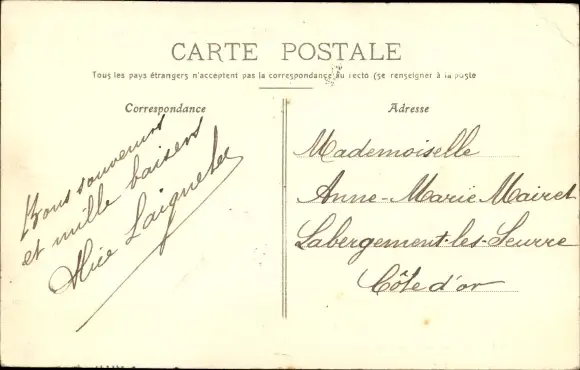 CARTE POSTALE
Tous les pays étrangers n'acceptent pas la correspondance au recto (se renseigner à la poste
Correspondance
Bons souvenirs
et mille baisers
Alice
Adresse
Mademoiselle
Anne-Marie Mairet
Labergement-les-Seurre
Côte d'or